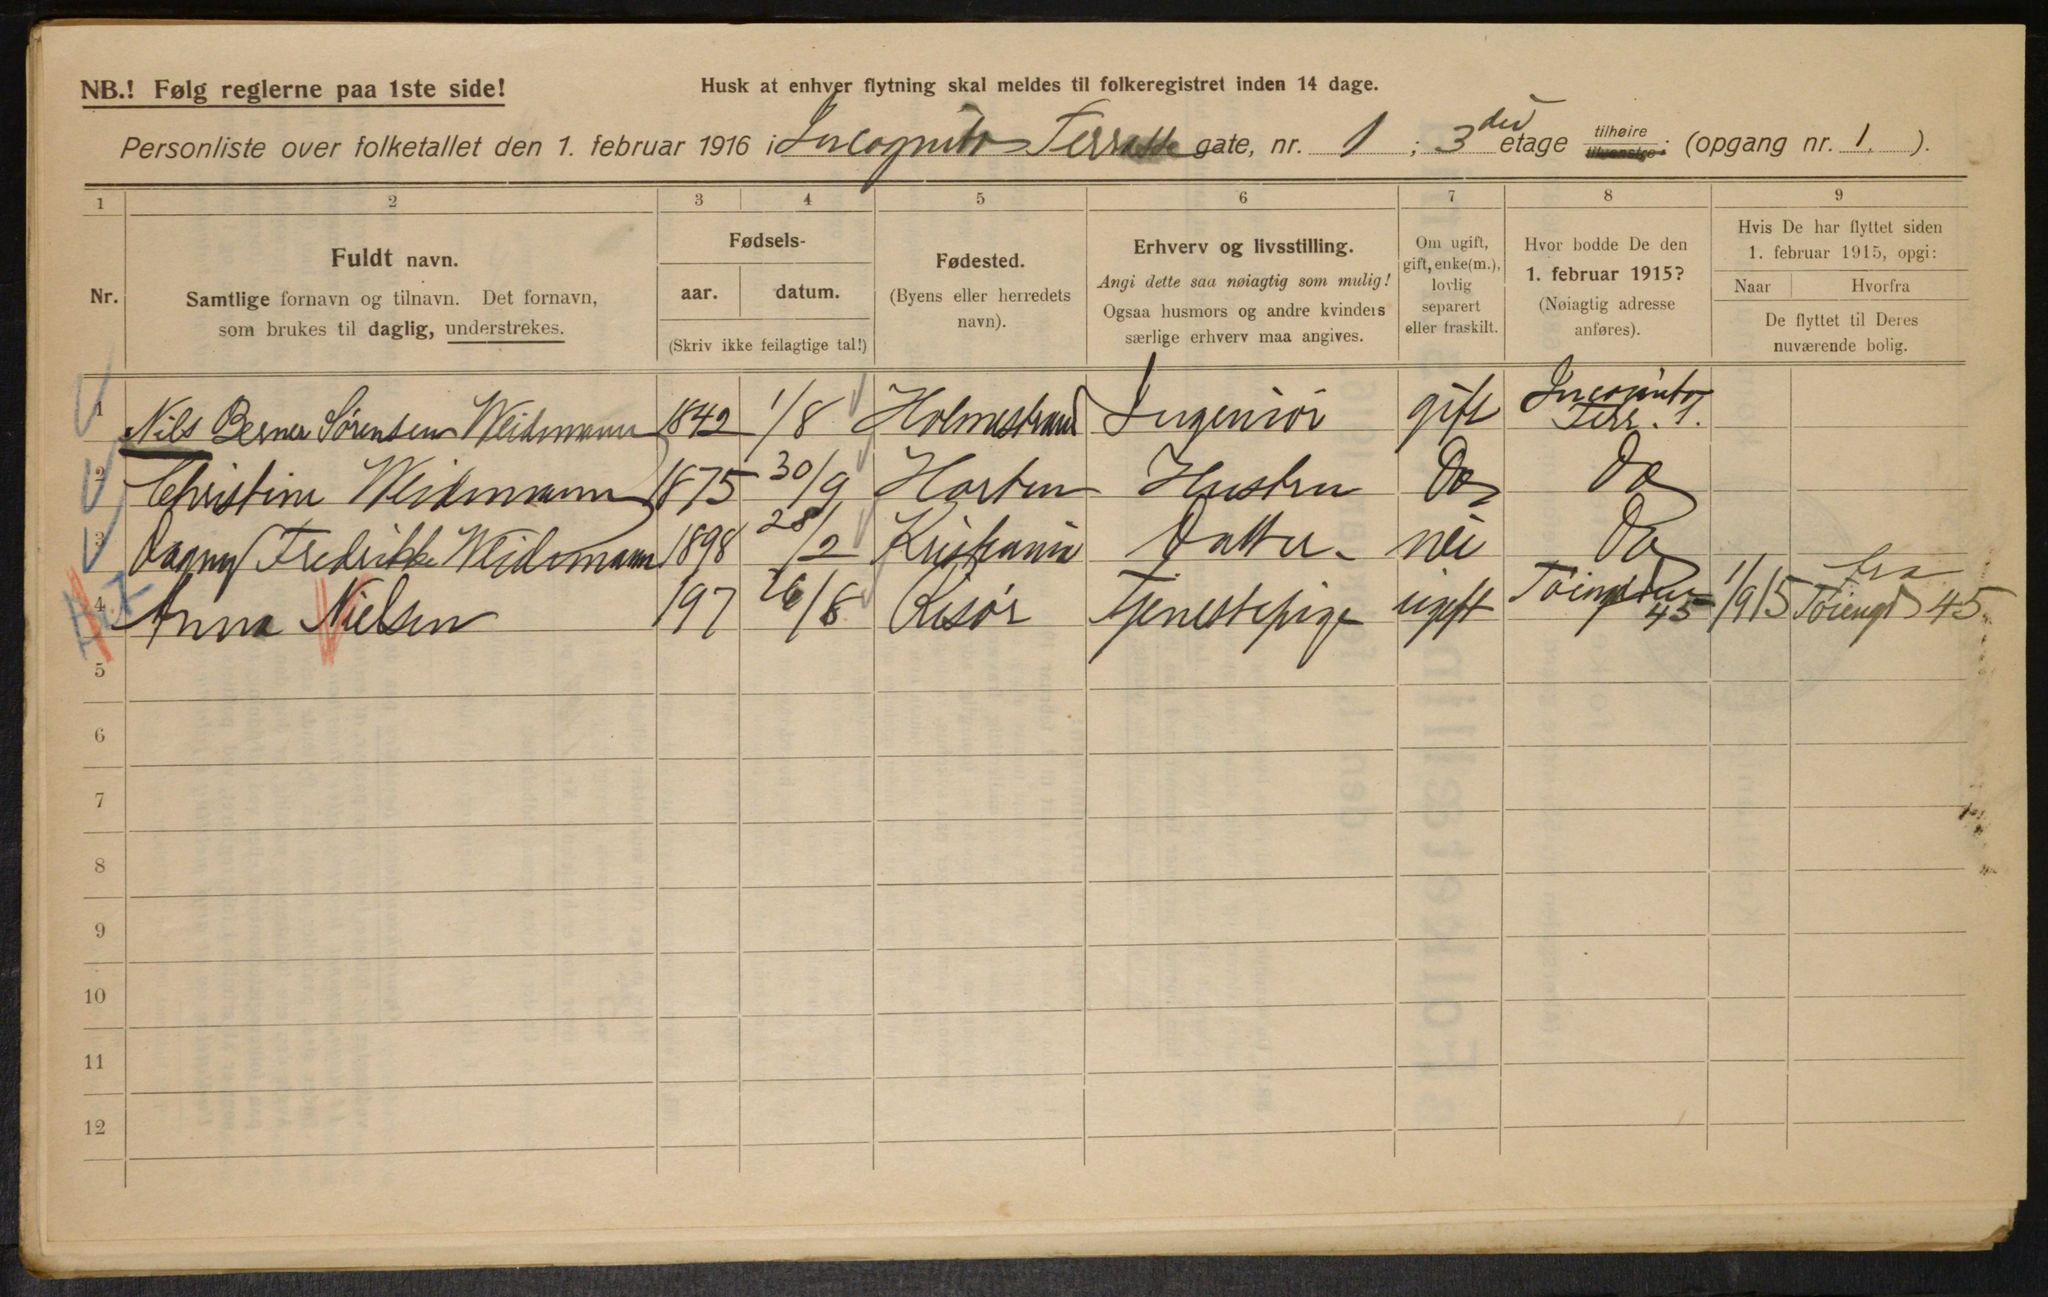 NB.! Følg reglerne paa 1ste side!
Husk at enhver flytning skal meldes til folkeregistret inden 14 dage.
Personliste over folketallet den 1. februar 1916 i Incognito Terrasse gate, nr. 1 ; 3die etage tilhøire tilvenstre; (opgang nr. 1. ).
1 2 3 4 5 6 7 8 9
Nr.
Fuldt navn.
Samtlige fornavn og tilnavn. Det fornavn,
som brukes til daglig, understrekes.
Fødsels-
aar. datum.
(Skriv ikke feilagtige tal!)
Fødested.
(Byens eller herredets
navn).
Erhverv og livsstilling.
Angi dette saa nøiagtig som mulig!
Ogsaa husmors og andre kvinders
særlige erhverv maa angives.
Om ugift,
gift, enke(m.),
lovlig
separert
eller fraskilt.
Hvor bodde De den
1. februar 1915?
(Nøiagtig adresse
anføres).
Hvis De har flyttet siden
1. februar 1915, opgi:
Naar Hvorfra
De flyttet til Deres
nuværende bolig.
1 Nils Berner Sørensen Weidemann 1842 1/8 Holmestrand Ingeniør gift Incognito Terr. 1.
2 Christine Weidemann 1875 30/9 Horten Hustru Do Do
3 Dagny Fredrikke Weidemann 1898 28/2 Kristiania Datter nei Do
4 Anna Nielsen 197 26/8 Risør Tjenestepige ugift 45 1/9 15 fra Tøiengt 45
5
6
7
8
9
10
11
12